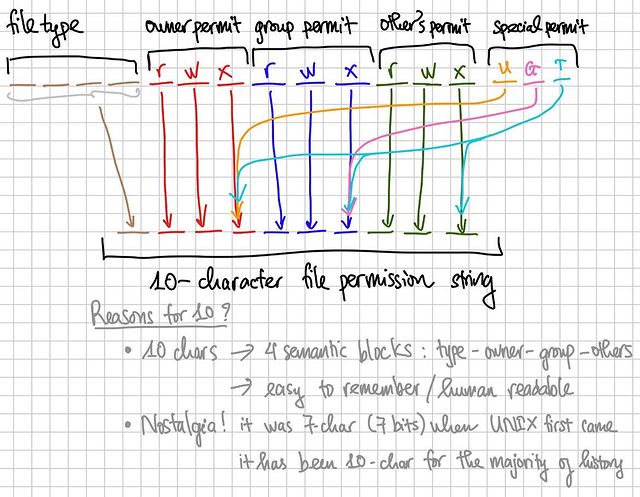 file type owner permit group permit other's permit special permit
r w x r w x r w x U G T
10-character file permission string
Reasons for 10?
• 10 chars → 4 semantic blocks : type-owner-group-others
→ easy to remember / human readable
• Nostalgia! it was 7-char (7 bits) when UNIX first came
it has been 10-char for the majority of history